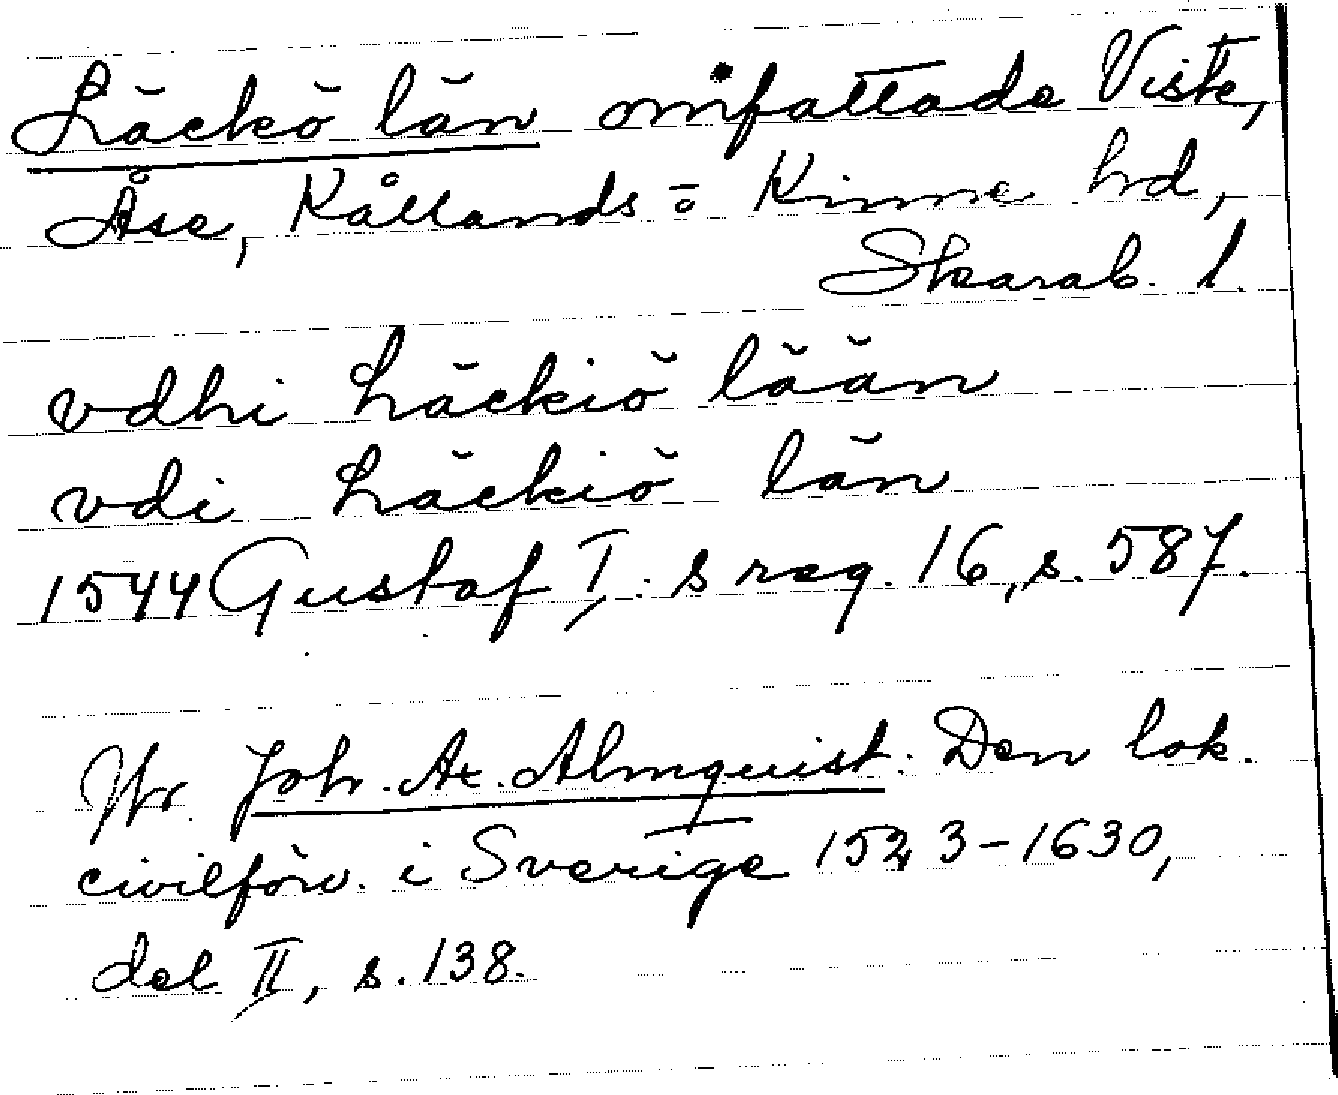 Läckö län omfattade Viste,
Åse, Kållands= o Kinne hd,
Skarab. l.
vdhi Läckiö lään
vdi Läckiö län
1544 Gustaf I:s reg. 16, s. 587.
Jfr Joh. Ax. Almquist: Den lok.
civilförv. i Sverige 1523-1630,
del II, s. 138.